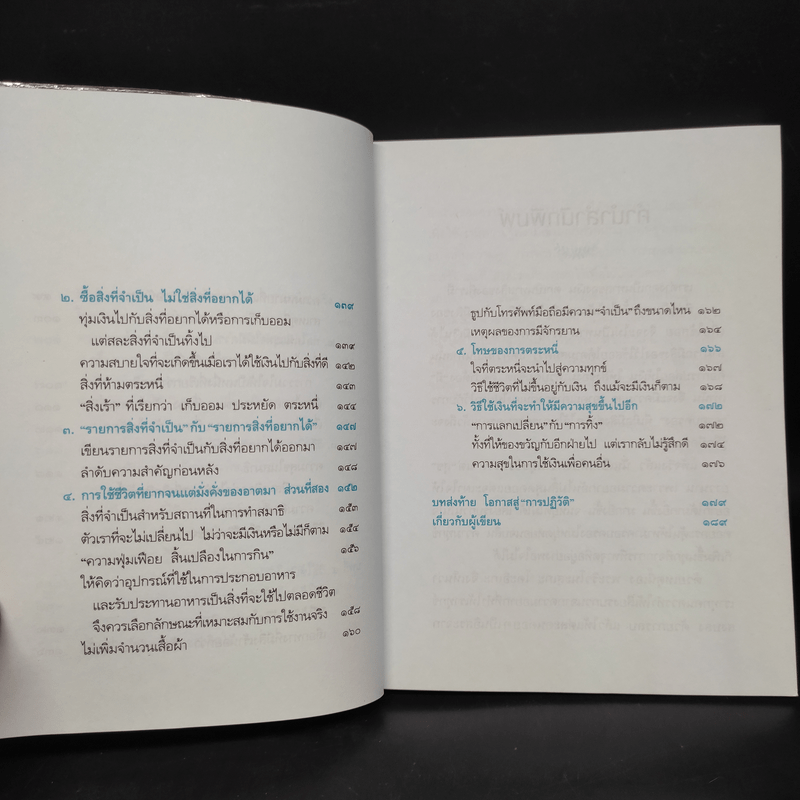 ๒. ซื้อสิ่งที่จำเป็น ไม่ใช่สิ่งที่อยากได้ ๑๓๙
ทุ่มเงินไปกับสิ่งที่อยากได้หรือการเก็บออม
แต่สละสิ่งที่จำเป็นทิ้งไป ๑๓๙
ความสบายใจที่จะเกิดขึ้นเมื่อเราได้ใช้เงินไปกับสิ่งที่ดี ๑๔๒
สิ่งที่ห้ามตระหนี่ ๑๔๓
“สิ่งเร้า” ที่เรียกว่า เก็บออม ประหยัด ตระหนี่ ๑๔๔
๓. “รายการสิ่งที่จำเป็น” กับ “รายการสิ่งที่อยากได้” ๑๔๗
เขียนรายการสิ่งที่จำเป็นกับสิ่งที่อยากได้ออกมา ๑๔๗
ลำดับความสำคัญก่อนหลัง ๑๔๘
๔. การใช้ชีวิตที่ยากจนแต่มั่งคั่งของอาตมา ส่วนที่สอง ๑๕๒
สิ่งที่จำเป็นสำหรับสถานที่ในการทำสมาธิ ๑๕๓
ตัวเราที่จะไม่เปลี่ยนไป ไม่ว่าจะมีเงินหรือไม่มีก็ตาม ๑๕๔
“ความฟุ่มเฟือย สิ้นเปลืองในการกิน” ๑๕๖
ให้คิดว่าอุปกรณ์ที่ใช้ในการประกอบอาหาร
และรับประทานอาหารเป็นสิ่งที่จะใช้ไปตลอดชีวิต
จึงควรเลือกลักษณะที่เหมาะสมกับการใช้งานจริง ๑๕๘
ไม่เพิ่มจำนวนเสื้อผ้า ๑๖๐
ธูปกับโทรศัพท์มือถือมีความ “จำเป็น” ถึงขนาดไหน ๑๖๒
เหตุผลของการมีจักรยาน ๑๖๔
๕. โทษของการตระหนี่ ๑๖๖
ใจที่ตระหนี่จะนำไปสู่ความทุกข์ ๑๖๗
วิธีใช้ชีวิตที่ไม่ขึ้นอยู่กับเงิน ถึงแม้จะมีเงินก็ตาม ๑๖๘
๖. วิธีใช้เงินที่จะทำให้มีความสุขขึ้นไปอีก ๑๗๒
“การแลกเปลี่ยน” กับ “การทิ้ง” ๑๗๒
ทั้งที่ให้ของขวัญกับอีกฝ่ายไป แต่เรากลับไม่รู้สึกดี ๑๗๔
ความสุขในการใช้เงินเพื่อคนอื่น ๑๗๖
บทส่งท้าย โอกาสสู่ “การปฏิวัติ” ๑๗๙
เกี่ยวกับผู้เขียน ๑๘๙